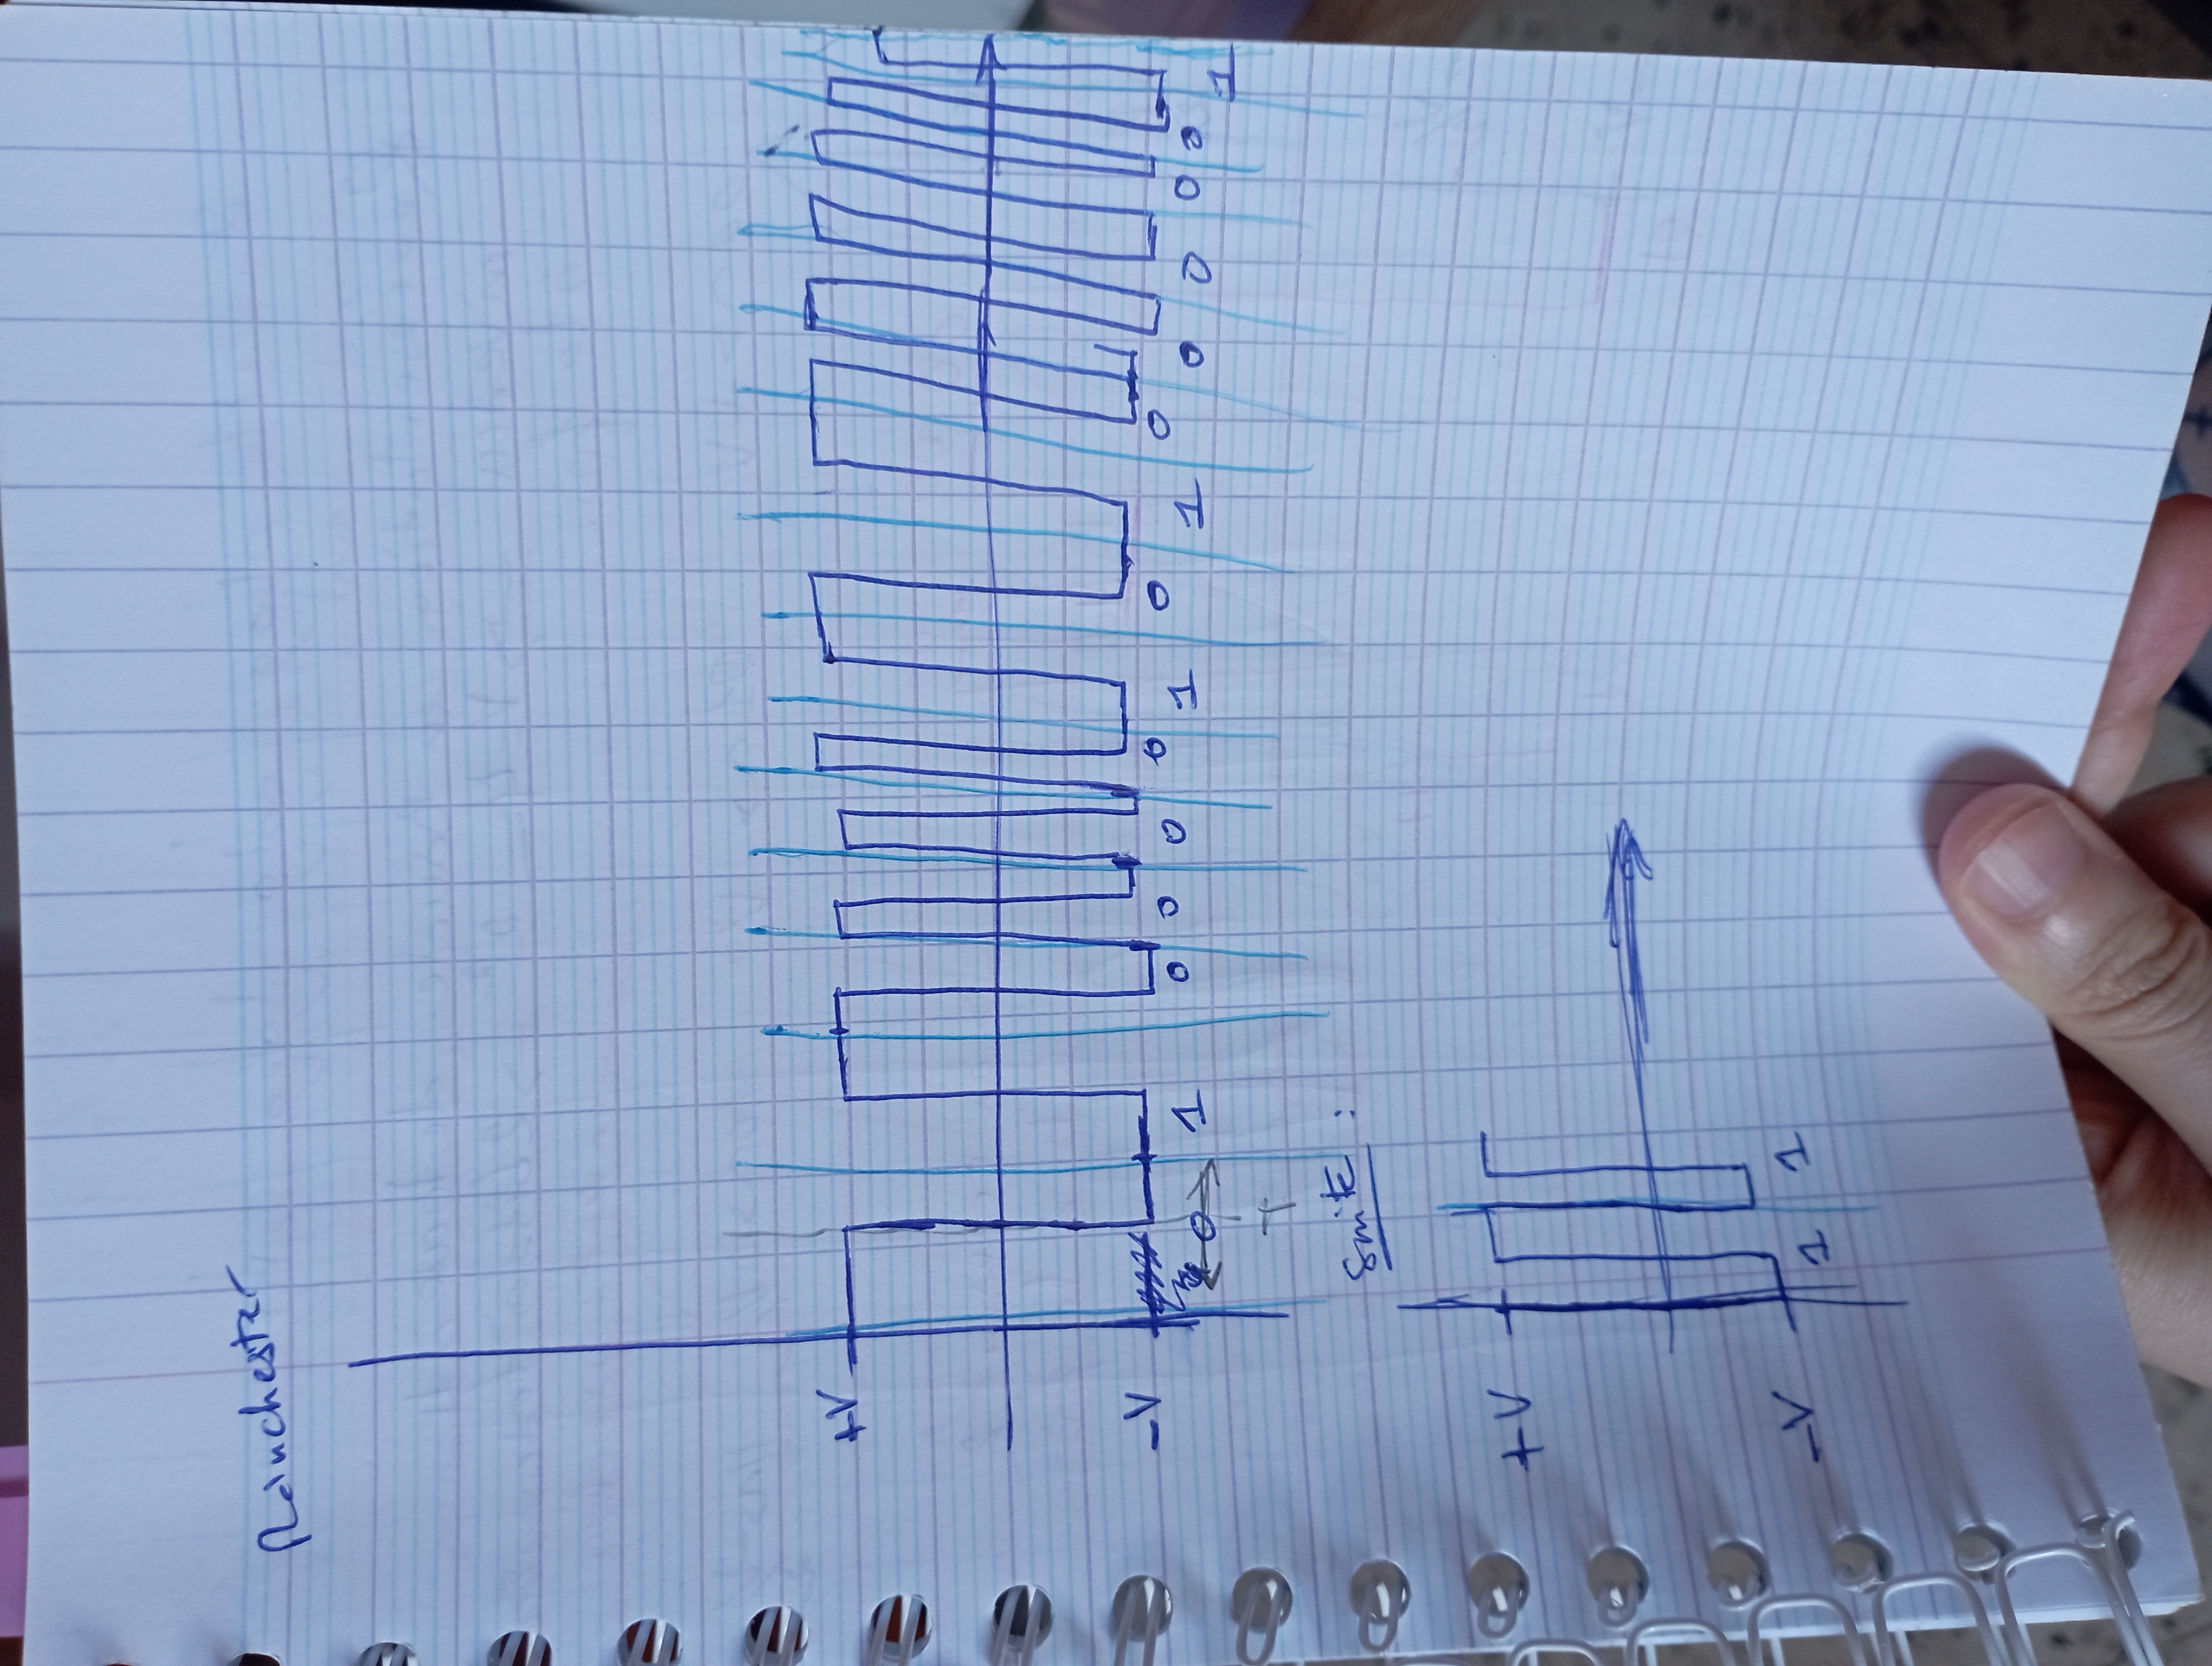 Manchester
+V
-V
0 1 0 0 0 0 1 0 1 0 0 0 0 0 1
T
Suite :
+V
-V
1 1